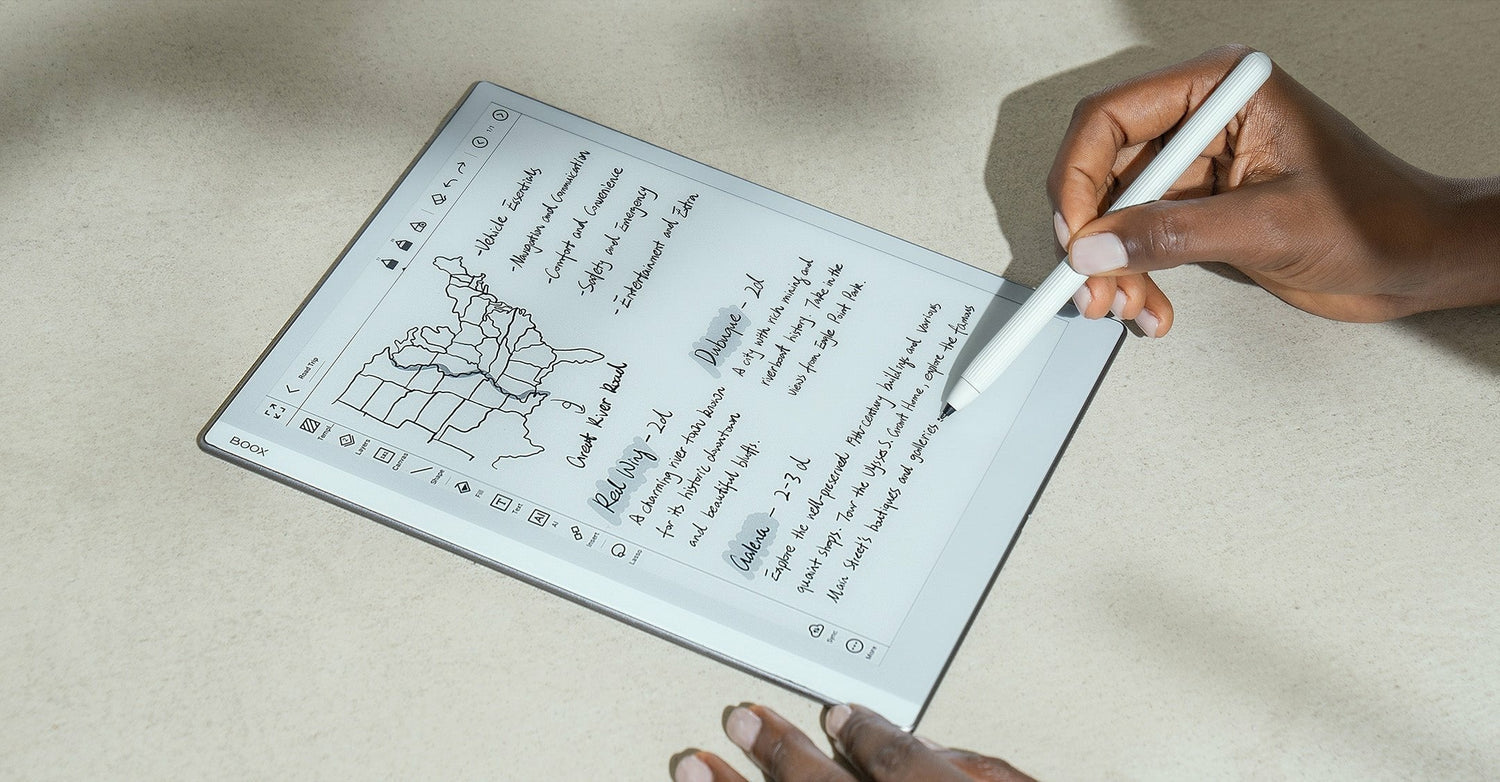 BOOX
Road Trip
1/1
Templ...
Layers
Canvas
Shape
Fill
Text
AI
Insert
Lasso
Sync
More
-Vehicle Essentials
-Navigation and Communication
-Comfort and Convenience
-Safety and Emergency
-Entertainment and Extra
Great River Road
Red Wing - 2d
A charming river town known
for its historic downtown
and beautiful bluffs.
Dubuque - 2d
A city with rich mining and
riverboat history. Take in the
views from Eagle Point Park.
Galena - 2-3d
Explore the well-preserved 19th-century buildings and various
quaint shops. Tour the Ulysses S. Grant Home, explore the famous
Main Street's boutiques and galleries.